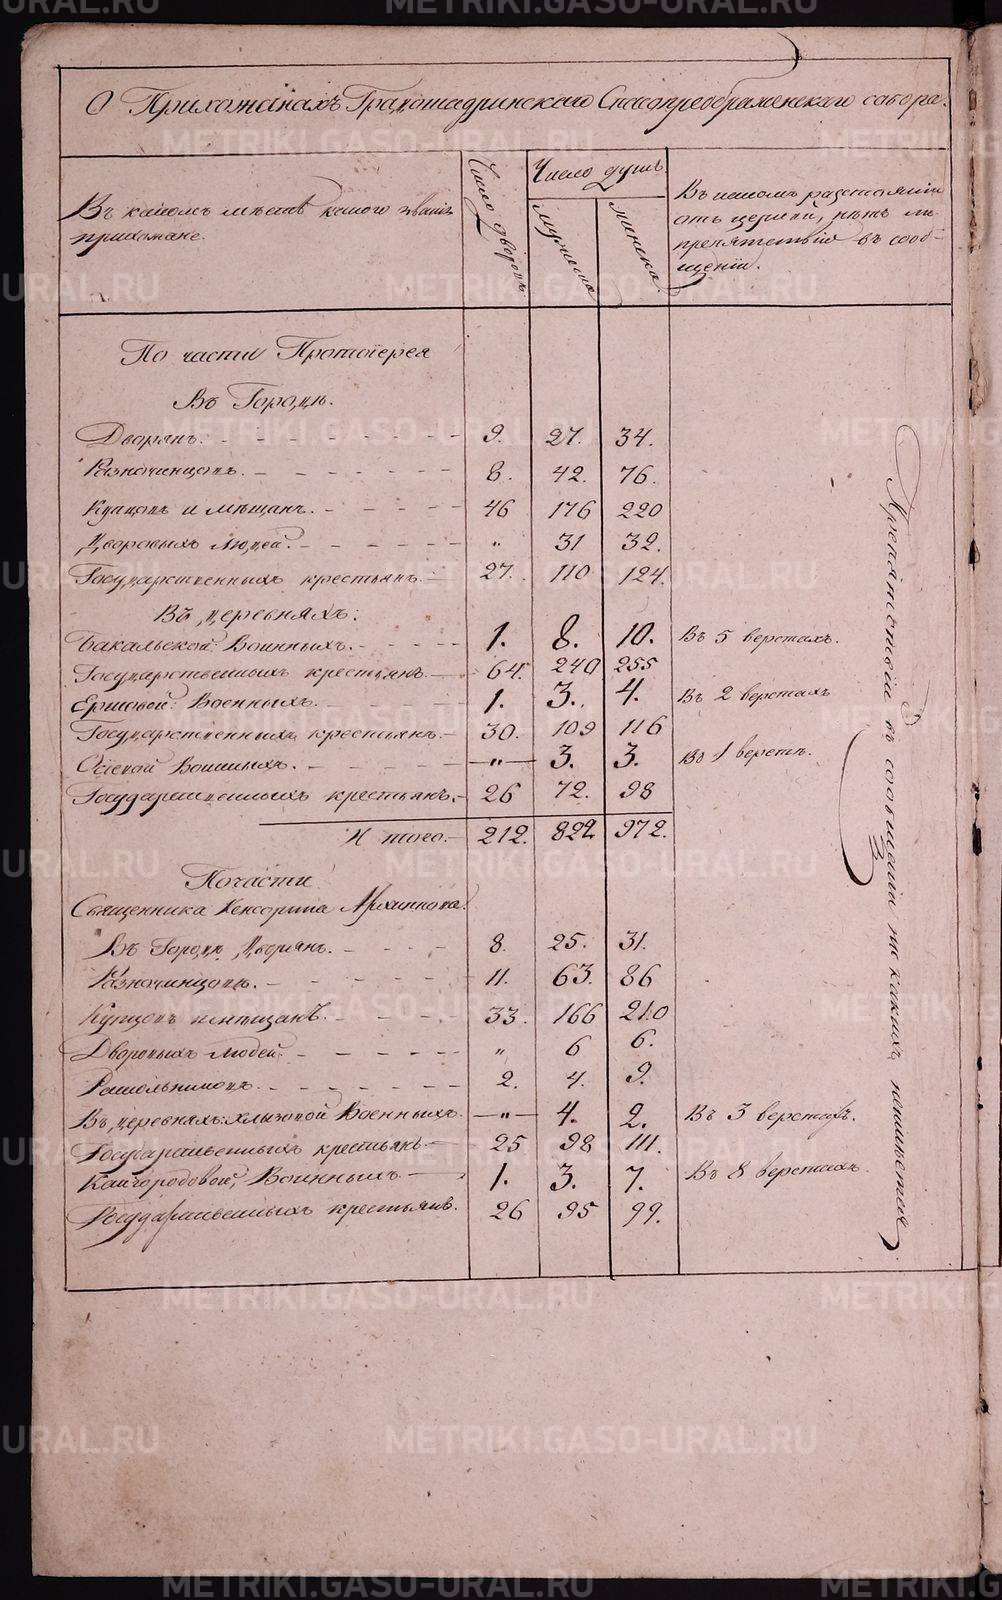 О Прихожанахъ Градошадринскаго Спасопреображенскаго собора.
Въ какомъ мѣстѣ какого званія
прихожане.
Число дворовъ
Число душъ.
мужеска
женска.
Въ какомъ разстояніи
отъ церкви, нѣтъ ли
препятствія въ сооб-
щеніи.
По части Протоіерея
Въ Городѣ.
Дворянъ. 9. 27. 34.
Разночинцовъ. 8. 42. 76.
Купцовъ и мѣщанъ. 46 176 220
Дворовыхъ людей. " 31 32.
Государственныхъ крестьянъ. 27. 110 124.
Въ деревняхъ:
Бакальской Военныхъ. 1. 8. 10. Въ 5 верстахъ.
Государственныхъ крестьянъ. 64. 240 255
Ершовой: Военныхъ. 1. 3. 4. Въ 2 верстахъ
Государственныхъ крестьянъ. 30. 109 116
Осѣевой Военныхъ. " 3. 3. Въ 1 верстѣ.
Государственныхъ крестьянъ. 26 72. 98
Итого. 212. 822 972.
По части
Священника
Въ Городѣ Дворянъ. 8. 25. 31.
Разночинцовъ. 11. 63. 86
Купцовъ и мѣщанъ. 33. 166 210
Дворовыхъ людей. " 6 6.
Раскольниковъ. 2. 4. 9.
Въ деревняхъ: Хлызовой Военныхъ. " 4. 2. Въ 3 верстахъ.
Государственныхъ крестьянъ 25 98 111.
Кайгородовой, Военныхъ. 1. 3. 7. Въ 8 верстахъ.
Государственныхъ крестьянъ. 26 95 99.
Препятствій въ сообщеніи ни какихъ неимѣется.
METRIKI.GASO-URAL.RU